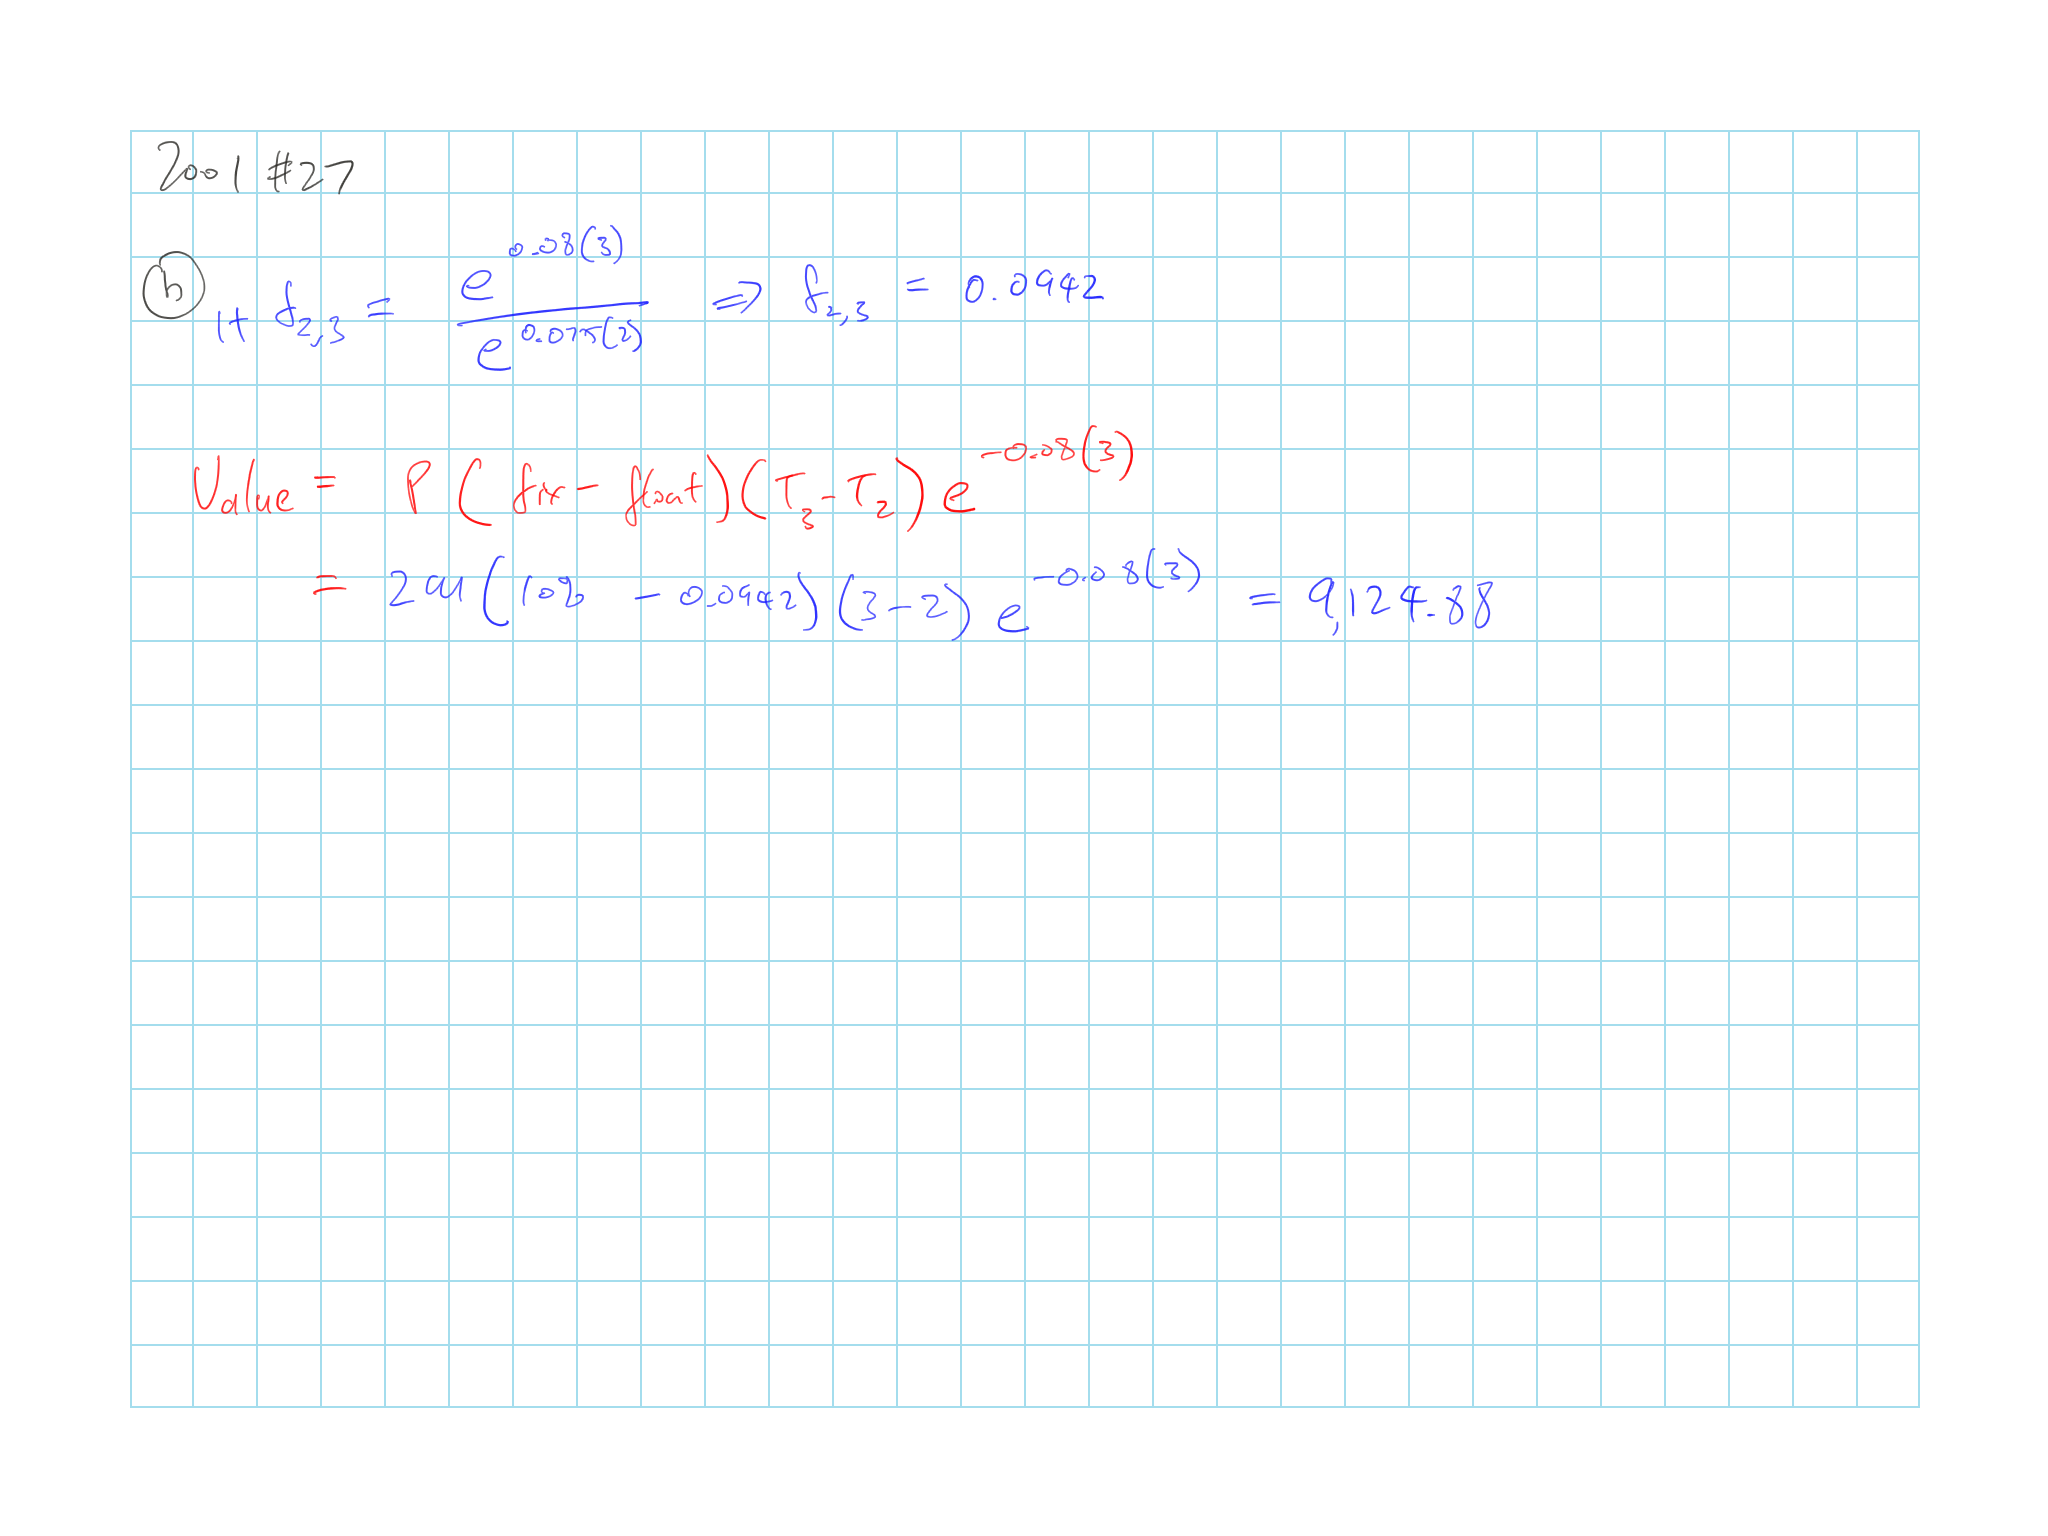 2001 #27
(b) 1+ f_{2,3} = e^{0.08(3)} / e^{0.075(2)} ⇒ f_{2,3} = 0.0942
Value = P ( fix - float)(T_3 - T_2) e^{-0.08(3)}
= 2M (10% - 0.0942)(3-2) e^{-0.08(3)} = 9,124.88